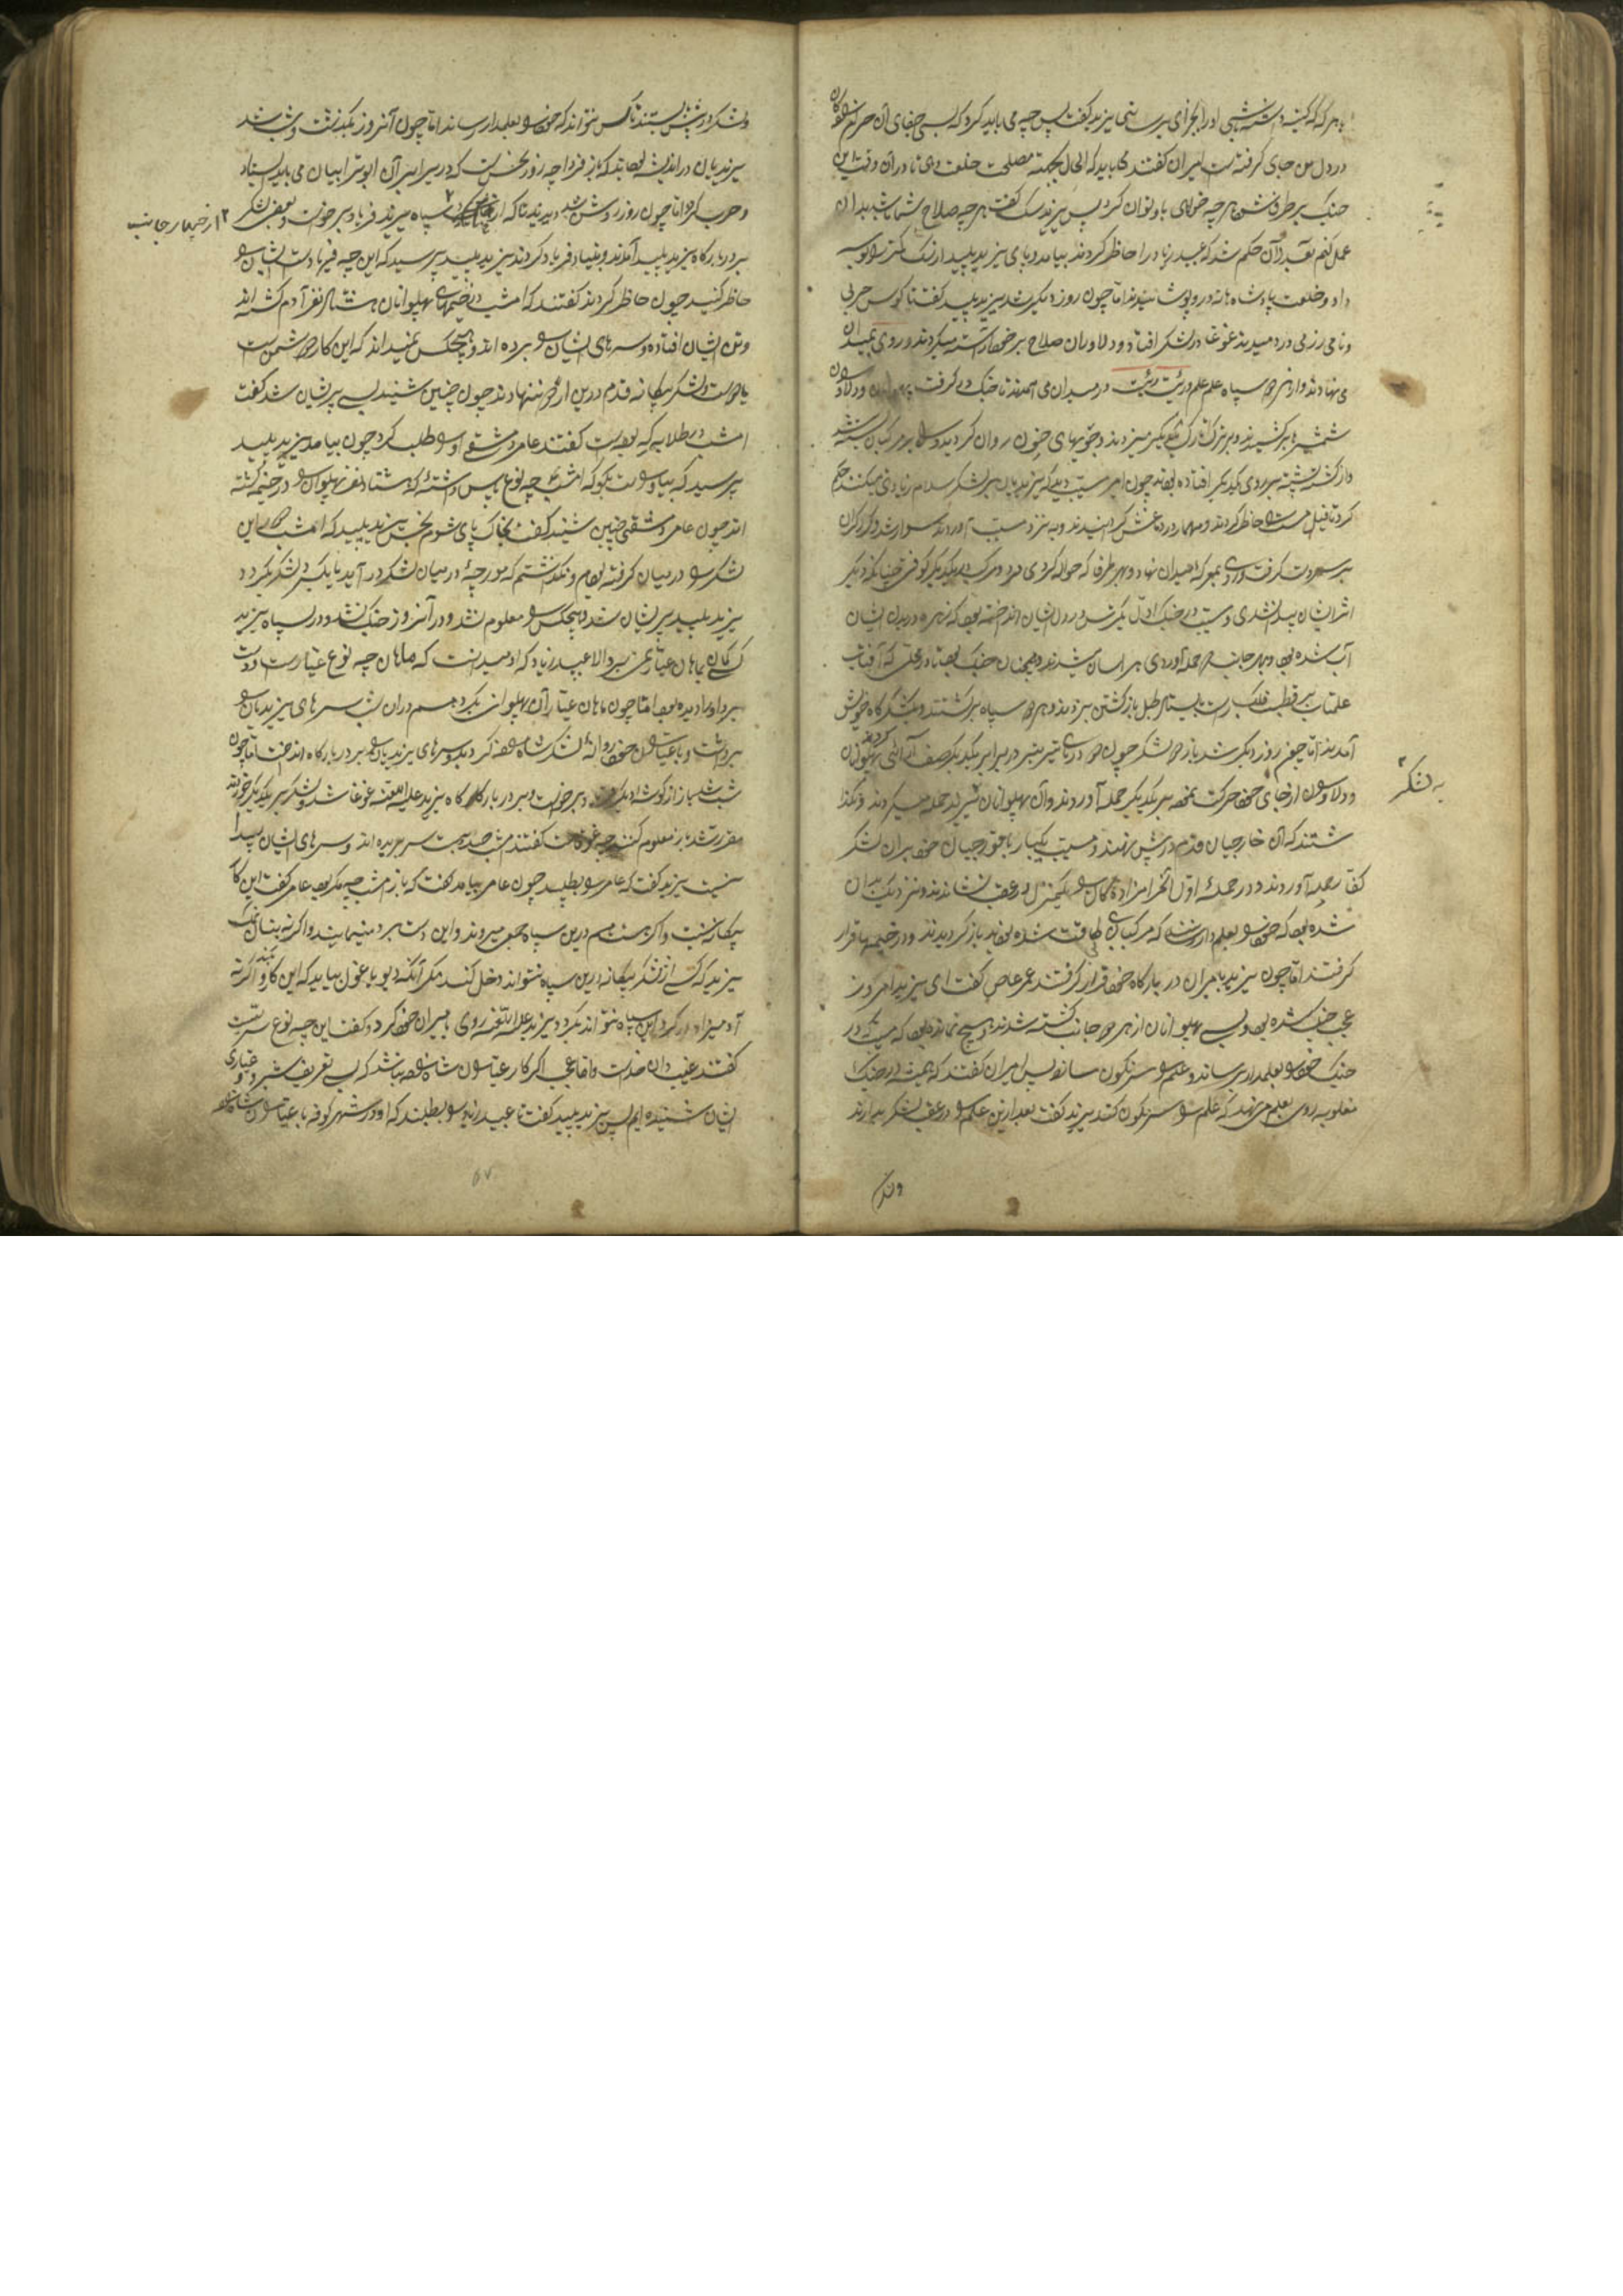 با هر که کینه داشته باشی او را بجزای برسانی یزید گفت پس چه می باید کرد که بسی جفای آن
در دل من جای گرفته است امیران گفتند می باید که الحال بجهة مصلحت خلعت دهی تا در آن وقت این
جنک بر طرف شود هر چه خواهی با او توان کرد پس یزید سک گفت هر چه صلاح شما باشد بدان
عمل کنم بعد از آن حکم شد که عبید زیاد را حاظر کردند بیامد و پای یزید پلید از سک کمتر را بوسه
داد و خلعت پادشاهانه در و پوشانیدند اما چون روز دیکر شد یزید پلید گفت تا کوس حربی
و نای رزمی در دمیدند غوغا در لشکر افتاد و دلاوران صلاح بر خود راست میکردند و روی بمیدان
می نهادند و از هر دو سپاه علم علم و رئیت رئیت در میدان می آمدند تا جنک در گرفت پهلوانان و دلاوران
شمشیرها بر کشیدند و بر تارک یکدیگر میزدند و جویهای خون روان کردند و
و از کشته پشته بر روی یکدیکر افتاده بودند چون امیر مسیب دید که یزیدیان بر لشکر اسلام زیادتی میکنند حکم
کرد تا فیل مست را حاظر کردند و در
بر سر دست گرفت و روی بمعرکه میدان نهاد و بهر طرف که حواله کردی مرد و مرکب را بیکدیکر کوفتی چنانکه دیکر
اثر ایشان پیدا نشدی و مسیب در جنک اول ترس در دل ایشان انداخته بود که زهره در بدن ایشان
آب شده بود و بهر جانب که حمله آوردی هراسان میشدند و همچنان جنک بود تا در محلی که آفتاب
عالمتاب بر قطب فلک راست بایستاد طبل باز گشتن بزدند و هر دو سپاه بر گشتند و بلشکر گاه خویش
آمدند اما چون روز دیکر شد باز هر دو لشکر چون دریا در برابر یکدیکر صف آرائی کردند پهلوانان
و دلاوران از جای خود حرکت نموده بر یکدیکر حمله آوردند و آن پهلوانان شیر حمله میکردند و نکذا
به لشکر
شتند که آن خارجیان قدم در پیش نهند و مسیب یکبار با قورچیان خود بر آن لشکر
کفار حمله آوردند و در حمله اول آنحرامزاده کان را یکمنزل در عقب نشاندند و نزدیک بدان
شده بود که خود را بعلمدار رسانند که مرکبان بی طاقت شده بودند باز گردیدند و در خیمه ها قرار
گرفتند اما چون یزید با میران در بارگاه خود قرار گرفتند عمر عاص گفت ای یزید امروز
عجب جنک شده بود و بسی پهلوانان از هر دو جانب کشته شدند و هیچ نمانده بود که مسیب در
جنک خود را بعلمدار برساند و علم را سرنکون سازد پس امیران گفتند که همیشه در جنک
مغلوبه روی بعلم می نهد که علم را سرنکون کند یزید گفت بعد ازین علم را در عقب لشکر بدارند
و لشکر
و لشکر در پیش بایستند تا کس نتواند که خود را بعلمدار رساند اما چون آنروز بکذشت و شب شد
یزیدیان در اندیشه بودند که باز فردا چه روز نحس است که در برابر آن ابو ترابیان می باید ایستاد
و حرب کرد اما چون روز روشن شد دیدند که از سپاه یزید فریاد بر خواست و بعضی لشکر
از چهار جانب
بر در بارگاه یزید پلید آمدند و بنیاد فریاد کردند یزید پلید پرسید که این چه فریاد است ایشان را
حاظر کنید چون حاظر کردند گفتند که امشب در خیمهای پهلوانان هشتاد نفر آدم کشته اند
و تن ایشان افتاده و سرهای ایشان را برده اند و هیچکس نمیداند که این کار دشمن است
یا دوست و لشکر بیکانه قدم درین اردو ننهادند چون چنین شنید بسی پریشان شد گفت
امشب طلایه که بود است گفتند عامر دمشقی او را طلب کرد چون بیامد یزید پلید
پرسید که بیا و راست بکو که امشب چه نوع پاس داشته که هشتاد نفر پهلوان را در خیمه کشته
اند چون عامر دمشقی چنین شنید گفت بخاک پای شوم نحس یزید پلید که امشب این
لشکر را در میان گرفته بودم و نکذاشتم که مورچه در میان لشکر در آید تا یک سر لشکر بکردد
یزید پلید پریشان شد و هیچکس را معلوم نشد و در آنروز جنک نشد و در سپاه یزید
کسی کمان بماهان عیار نمی برد الا عبید زیاد که او میدانست که ماهان چه نوع عیار است و دست
برد او را دیده بود اما چون ماهان عیار آن پهلوانی بکرد هم در آن شب سرهای یزیدیان را
برداشت و با عیاران خود روانه لشکر شاه شد و سرهای یزیدیان بر در بارگاه انداخت اما چون
شب شد باز از گوشه دیکر فریاد بر خواست و بر در بارگاه یزید علیه اللعنه غوغا شد و لشکر بر یکدیکر
مقرر شد باز معلوم کنند چه غوغاست گفتند امشب صد و بیست سر بریده اند و سرهای ایشان پیدا
نیست یزید گفت که عامر را بطلبید چون عامر بیامد گفت که باز امشب چه مکر بود عامر گفت این کار
بیکانه نیست و اکر هست هم درین سپاه جمعی میروند و این دستبرد مینمایند و اکر نه بنان نمک
یزید که کسی از لشکر بیکانه درین سپاه نتواند دخل کند مکر آنکه دیو یا غول بیاید که این کار کند و اکر نه
آدمیزاد در کرد این سپاه نتواند بکردد یزید علیه اللعنه روی بامیران خود کرد و گفت این چه نوع سر است
گفتند غیب دان خداست و اما عجب اکر کار عیاران شاه نباشد که بسی تعریف شبروی و عیاری
ایشان شنیده ایم پس یزید پلید گفت تا عبید زیاد را بطلبند که او در شهر کوفه با عیاران